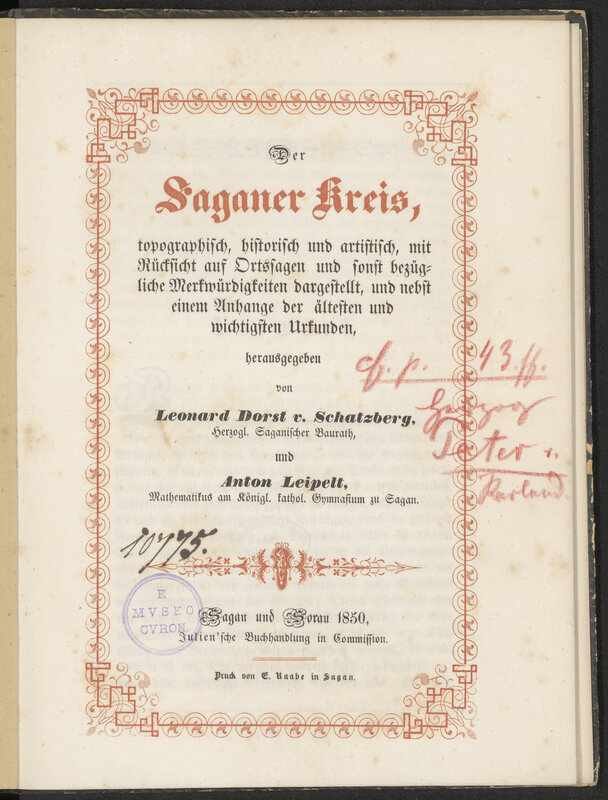 Der
Saganer Kreis,
topographisch, historisch und artistisch, mit
Rücksicht auf Ortssagen und sonst bezüg-
liche Merkwürdigkeiten dargestellt, und nebst
einem Anhange der ältesten und
wichtigsten Urkunden,
herausgegeben
von
Leonard Dorst v. Schatzberg,
Herzogl. Saganischer Baurath,
und
Anton Leipelt,
Mathematikus am Königl. kathol. Gymnasium zu Sagan.
p. 43.ff.
Herzog
Peter v.
Kurland.
10775.
E
MVSEO
CVRON.
Sagan und Sorau 1850,
Julien'sche Buchhandlung in Commission.
Druck von E. Raabe in Sagan.